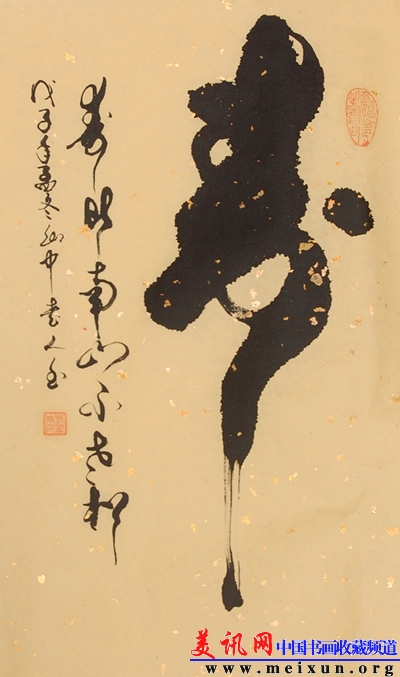 寿
寿比南山不老松
戊子年
美讯网 中国书画收藏频道
www.meixun.org